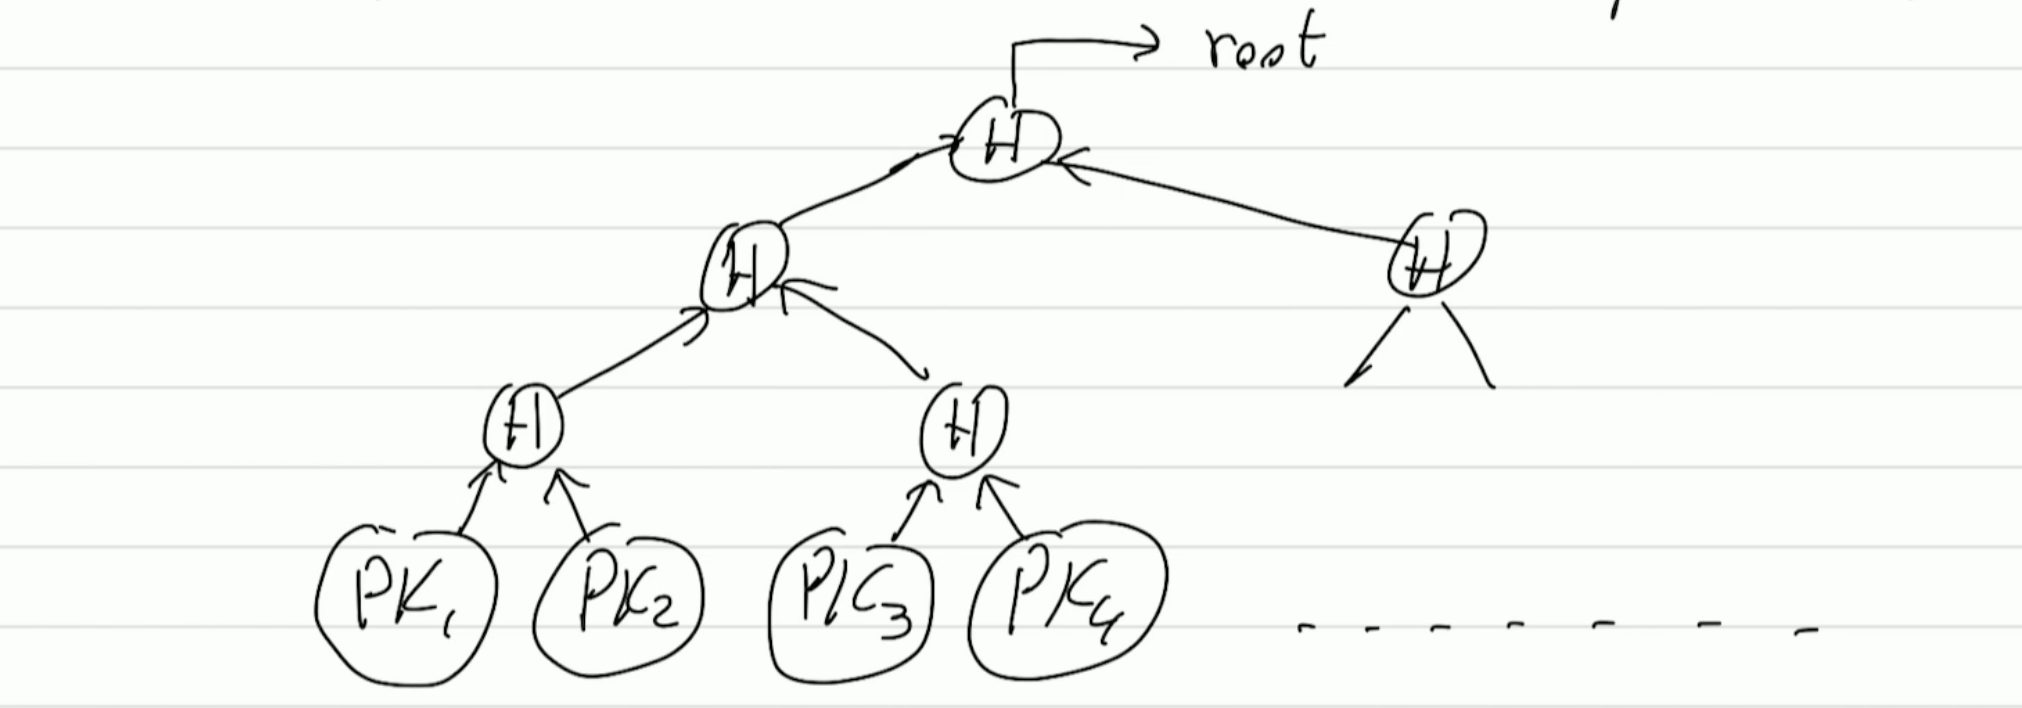 root
H
H H
H H
PK1 PK2 PK3 PK4 - - - - - - -